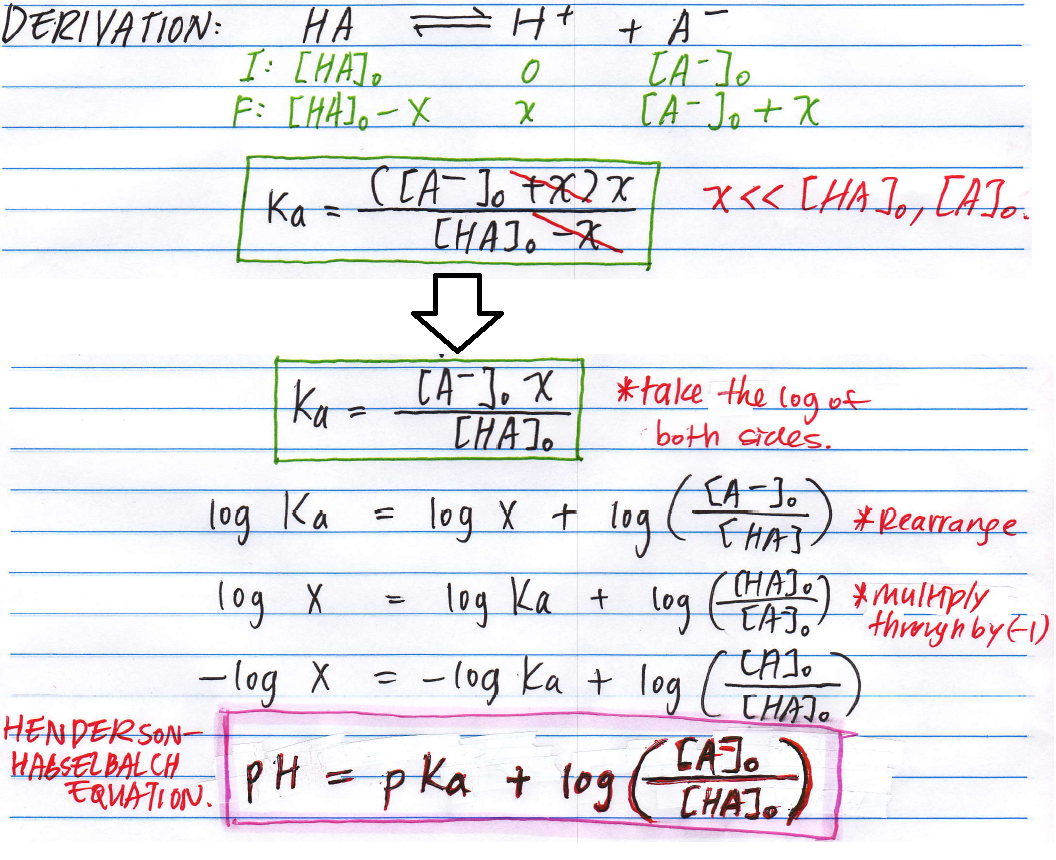 DERIVATION: HA ⇌ H⁺ + A⁻
I: [HA]₀ 0 [A⁻]₀
F: [HA]₀ - x x [A⁻]₀ + x
Ka = (([A⁻]₀ + x) x) / ([HA]₀ - x) x << [HA]₀, [A]₀.
Ka = ([A⁻]₀ x) / [HA]₀ *take the log of
both sides.
log Ka = log x + log([A⁻]₀ / [HA]) *Rearrange
log x = log Ka + log([HA]₀ / [A]₀) *multiply
through by (-1)
-log x = -log Ka + log([A]₀ / [HA]₀)
HENDERSON-
HASSELBALCH
EQUATION.
pH = pKa + log([A⁻]₀ / [HA]₀)